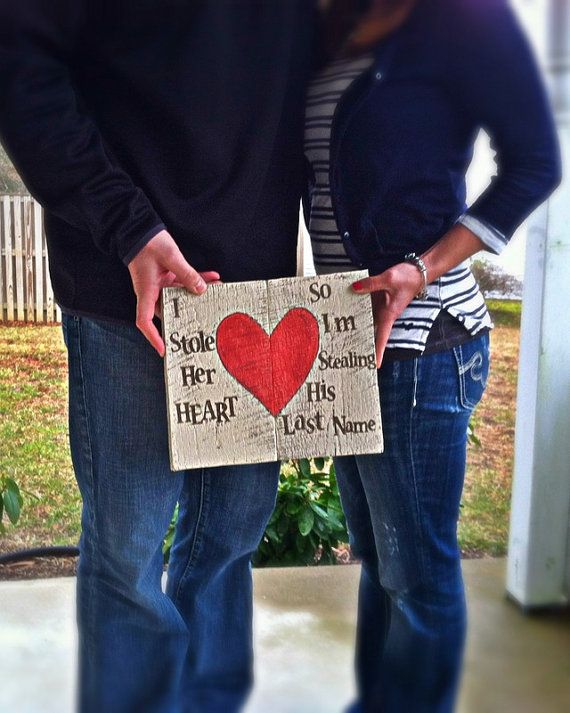 I
Stole
Her
HEART
So
Im
Stealing
His
Last Name